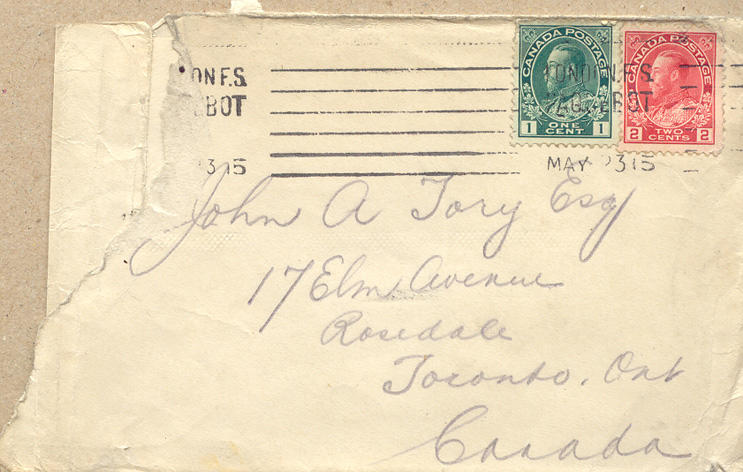 ON F.S.
BOT
3 15
CANADA POSTAGE
1 ONE CENT 1
CANADA POSTAGE
2 TWO CENTS 2
LONDON F.S.
PAQUEBOT
MAY 23 15
John A Tory Esq
17 Elm Avenue
Rosedale
Toronto. Ont
Canada